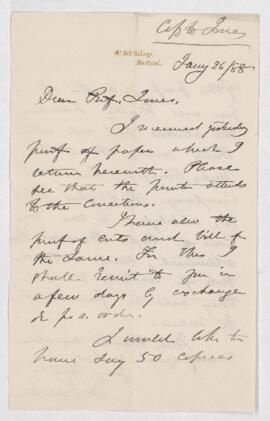 Cop to Jones
McGill College,
Montreal.
Jany 26/88
Dear Prof. Jones.
I received yesterday
proof of paper which I
return herewith. Please
see that the printer attends
to the corrections.
I have also the
proof of cuts and bill of
the same. For this I
shall remit to you in
a few days by exchange
or p.o. order.
I would like to
have say 50 copies